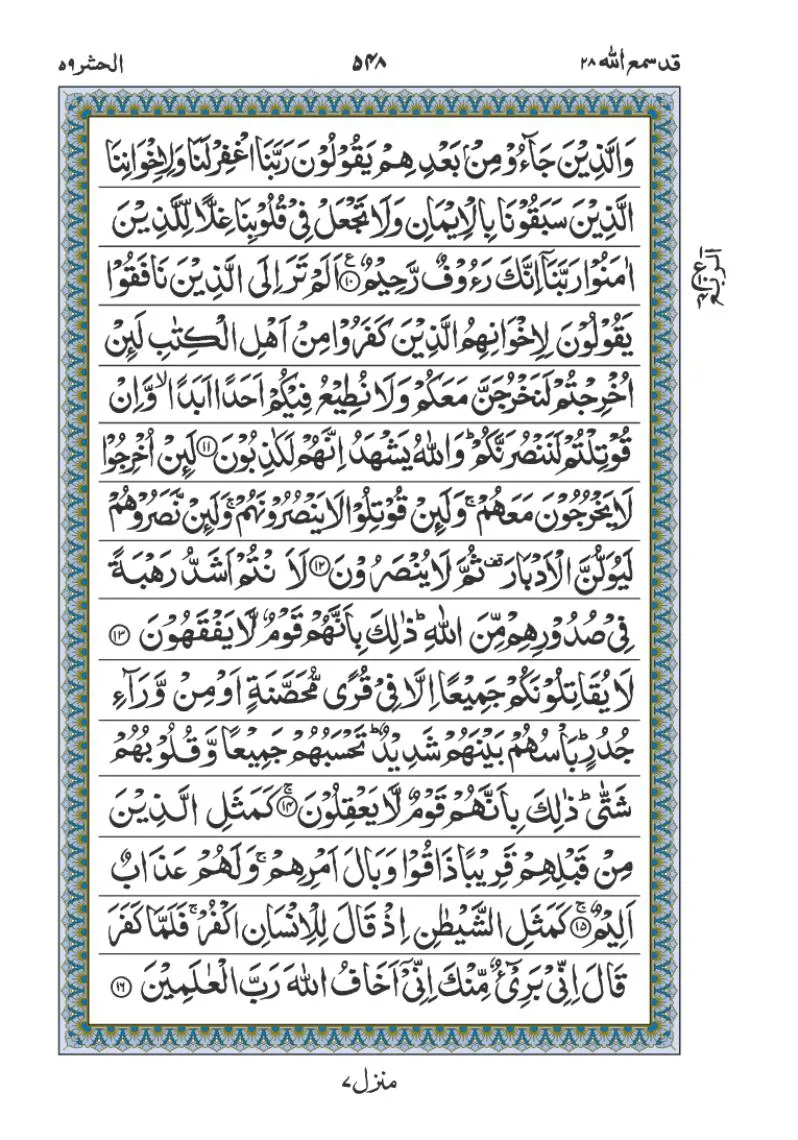 قد سمع الله ۲۸
۵۴۸
الحشر ۵۹
وَالَّذِيْنَ جَآءُوْ مِنْۢ بَعْدِهِمْ يَقُوْلُوْنَ رَبَّنَا اغْفِرْ لَنَا وَلِاِخْوَانِنَا
الَّذِيْنَ سَبَقُوْنَا بِالْاِيْمَانِ وَلَا تَجْعَلْ فِيْ قُلُوْبِنَا غِلًّا لِّلَّذِيْنَ
اٰمَنُوْا رَبَّنَاۤ اِنَّكَ رَءُوْفٌ رَّحِيْمٌ ۧ﴿۱۰﴾ اَلَمْ تَرَ اِلَى الَّذِيْنَ نَافَقُوْا
يَقُوْلُوْنَ لِاِخْوَانِهِمُ الَّذِيْنَ كَفَرُوْا مِنْ اَهْلِ الْكِتٰبِ لَئِنْ
اُخْرِجْتُمْ لَنَخْرُجَنَّ مَعَكُمْ وَلَا نُطِيْعُ فِيْكُمْ اَحَدًا اَبَدًا ۙ وَّاِنْ
قُوْتِلْتُمْ لَنَنْصُرَنَّكُمْ ؕ وَاللّٰهُ يَشْهَدُ اِنَّهُمْ لَكٰذِبُوْنَ ﴿۱۱﴾ لَئِنْ اُخْرِجُوْا
لَا يَخْرُجُوْنَ مَعَهُمْ ۚ وَلَئِنْ قُوْتِلُوْا لَا يَنْصُرُوْنَهُمْ ۚ وَلَئِنْ نَّصَرُوْهُمْ
لَيُوَلُّنَّ الْاَدْبَارَ قف ثُمَّ لَا يُنْصَرُوْنَ ﴿۱۲﴾ لَاَنْتُمْ اَشَدُّ رَهْبَةً
فِيْ صُدُوْرِهِمْ مِّنَ اللّٰهِ ؕ ذٰلِكَ بِاَنَّهُمْ قَوْمٌ لَّا يَفْقَهُوْنَ ﴿۱۳﴾
لَا يُقَاتِلُوْنَكُمْ جَمِيْعًا اِلَّا فِيْ قُرًى مُّحَصَّنَةٍ اَوْ مِنْ وَّرَآءِ
جُدُرٍ ؕ بَاْسُهُمْ بَيْنَهُمْ شَدِيْدٌ ؕ تَحْسَبُهُمْ جَمِيْعًا وَّقُلُوْبُهُمْ
شَتّٰى ؕ ذٰلِكَ بِاَنَّهُمْ قَوْمٌ لَّا يَعْقِلُوْنَ ۚ﴿۱۴﴾ كَمَثَلِ الَّذِيْنَ
مِنْ قَبْلِهِمْ قَرِيْبًا ذَاقُوْا وَبَالَ اَمْرِهِمْ ۚ وَلَهُمْ عَذَابٌ
اَلِيْمٌ ۚ﴿۱۵﴾ كَمَثَلِ الشَّيْطٰنِ اِذْ قَالَ لِلْاِنْسَانِ اكْفُرْ ۚ فَلَمَّا كَفَرَ
قَالَ اِنِّيْ بَرِيْٓءٌ مِّنْكَ اِنِّيْۤ اَخَافُ اللّٰهَ رَبَّ الْعٰلَمِيْنَ ﴿۱۶﴾
الربع
ع
۴
منزل ۷